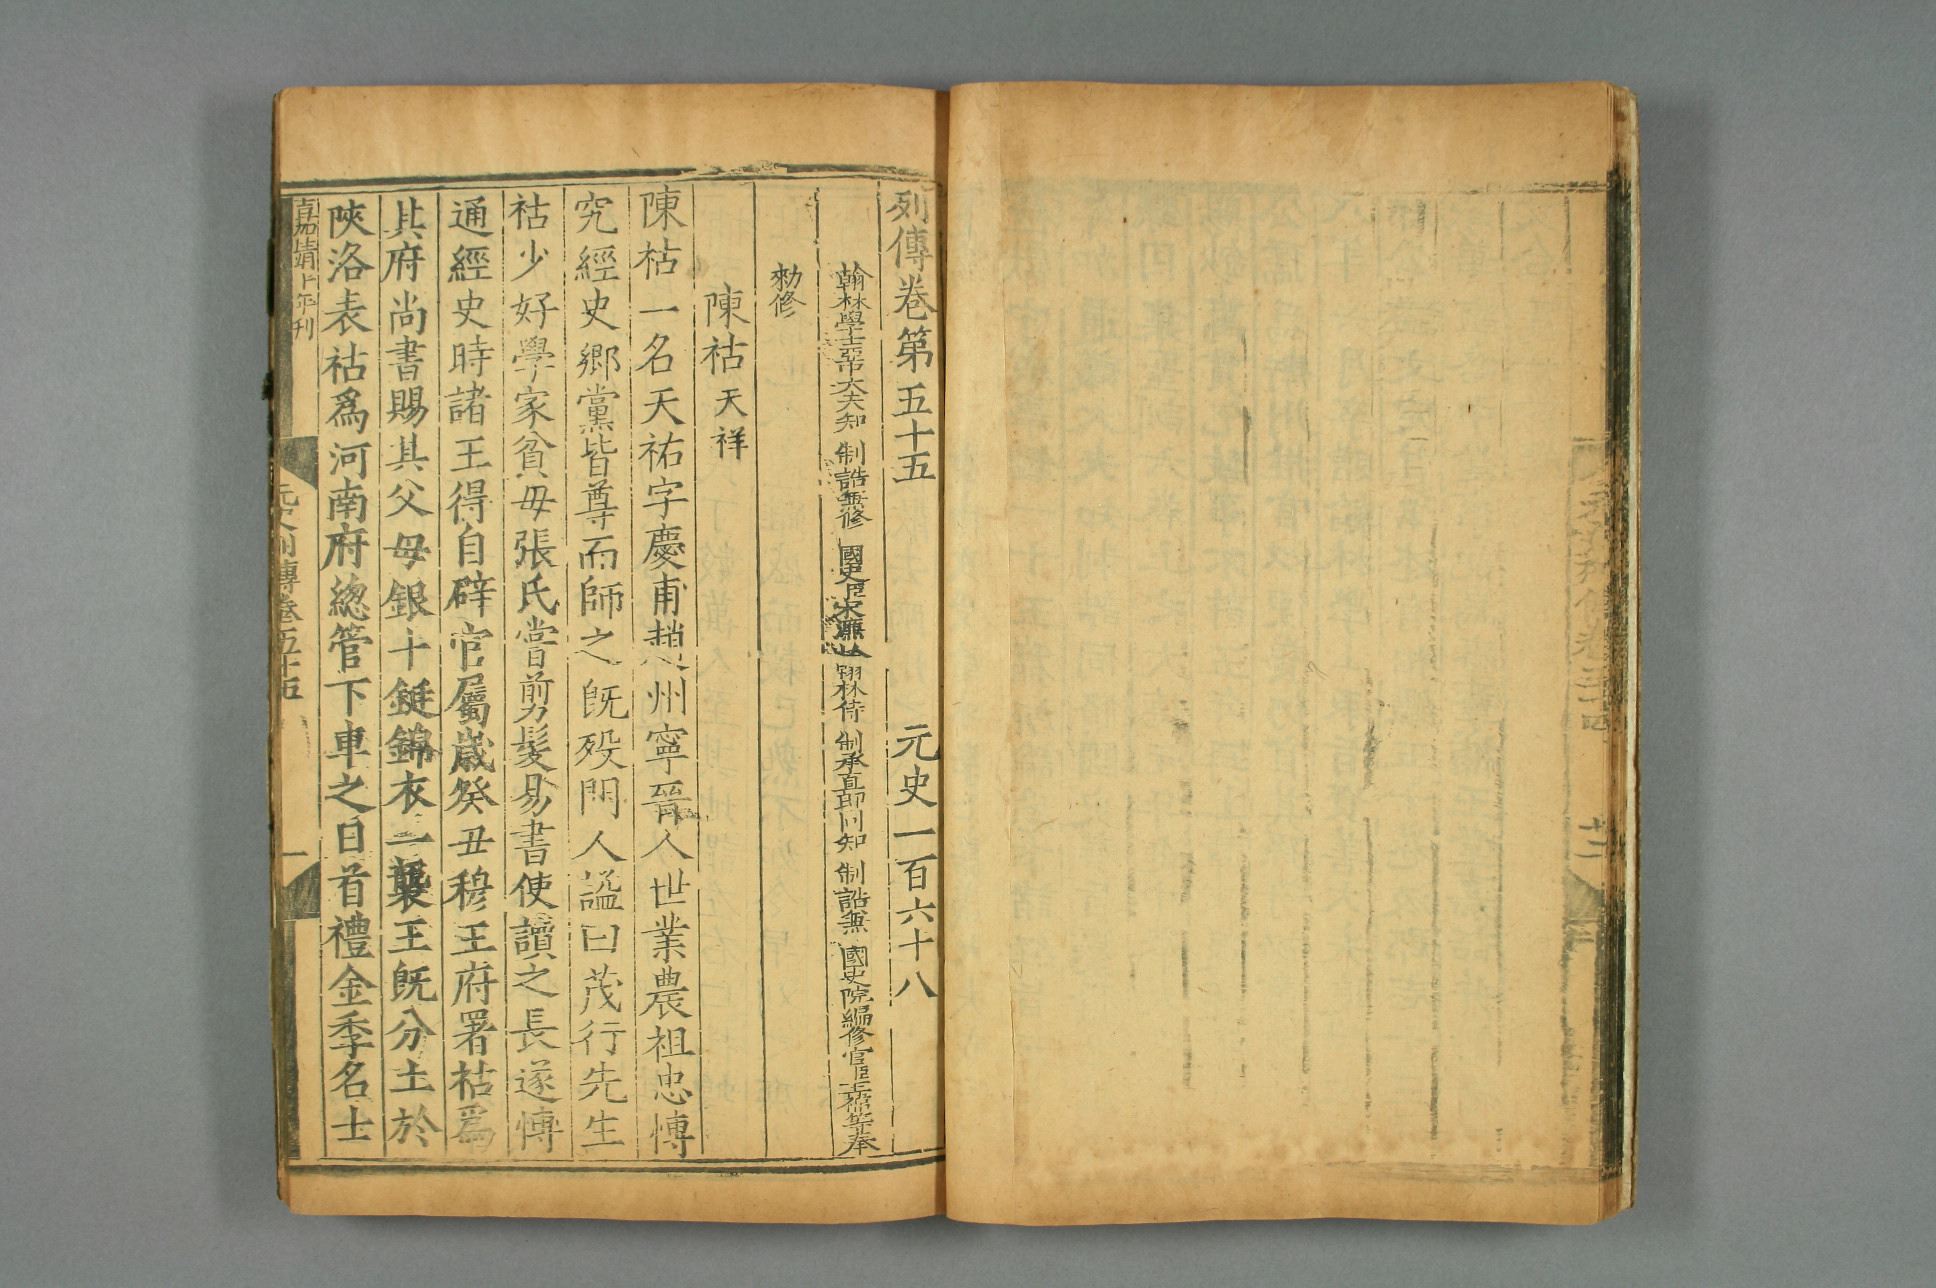 列傳卷第五十五 元史一百六十八
翰林學士亞中大夫知 制誥兼修 國史臣宋濂 翰林待 制承直郎同知 制誥兼 國史院編修官臣王禕等奉
勑修
陳祜 天祥
陳祜一名天祐字慶甫趙州寧晉人世業農祖忠愽
究經史鄉黨皆尊而師之既殁門人謚曰茂行先生
祜少好學家貧母張氏嘗剪髮易書使讀之長遂愽
通經史時諸王得自辟官屬歲癸丑穆王府署祜爲
其府尚書賜其父母銀十鋌錦衣一襲王既分土於
陜洛表祜爲河南府總管下車之日首禮金季名士
嘉靖 年刊
元史列傳卷五十五
一